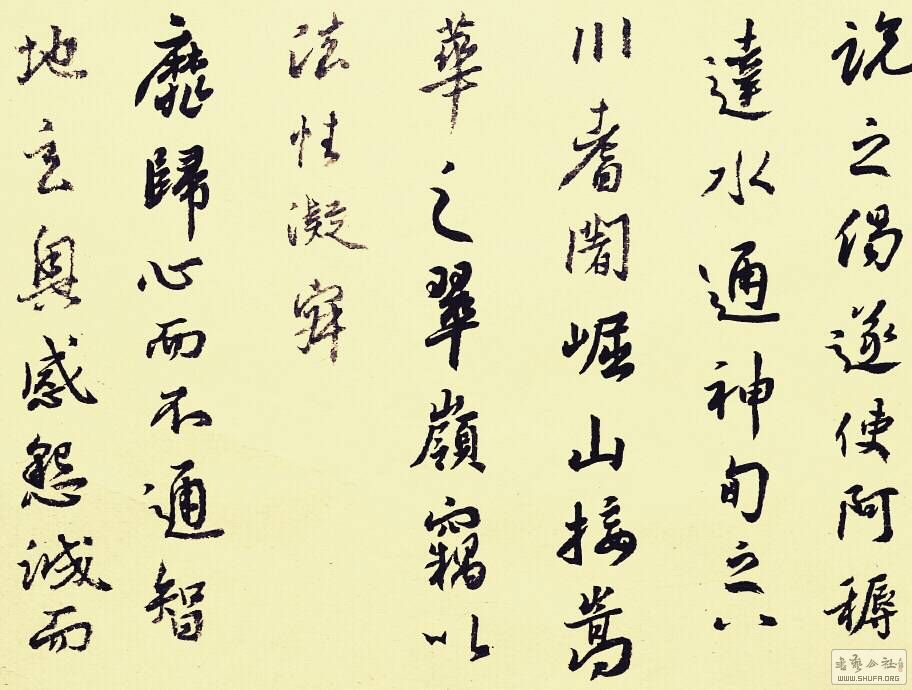 説之偈遂使阿耨
達水通神旬之八
川耆闍崛山接嵩
華之翠嶺竊以
法性凝寂
靡歸心而不通智
地玄奥感懇誠而
WWW.SHUFA.ORG